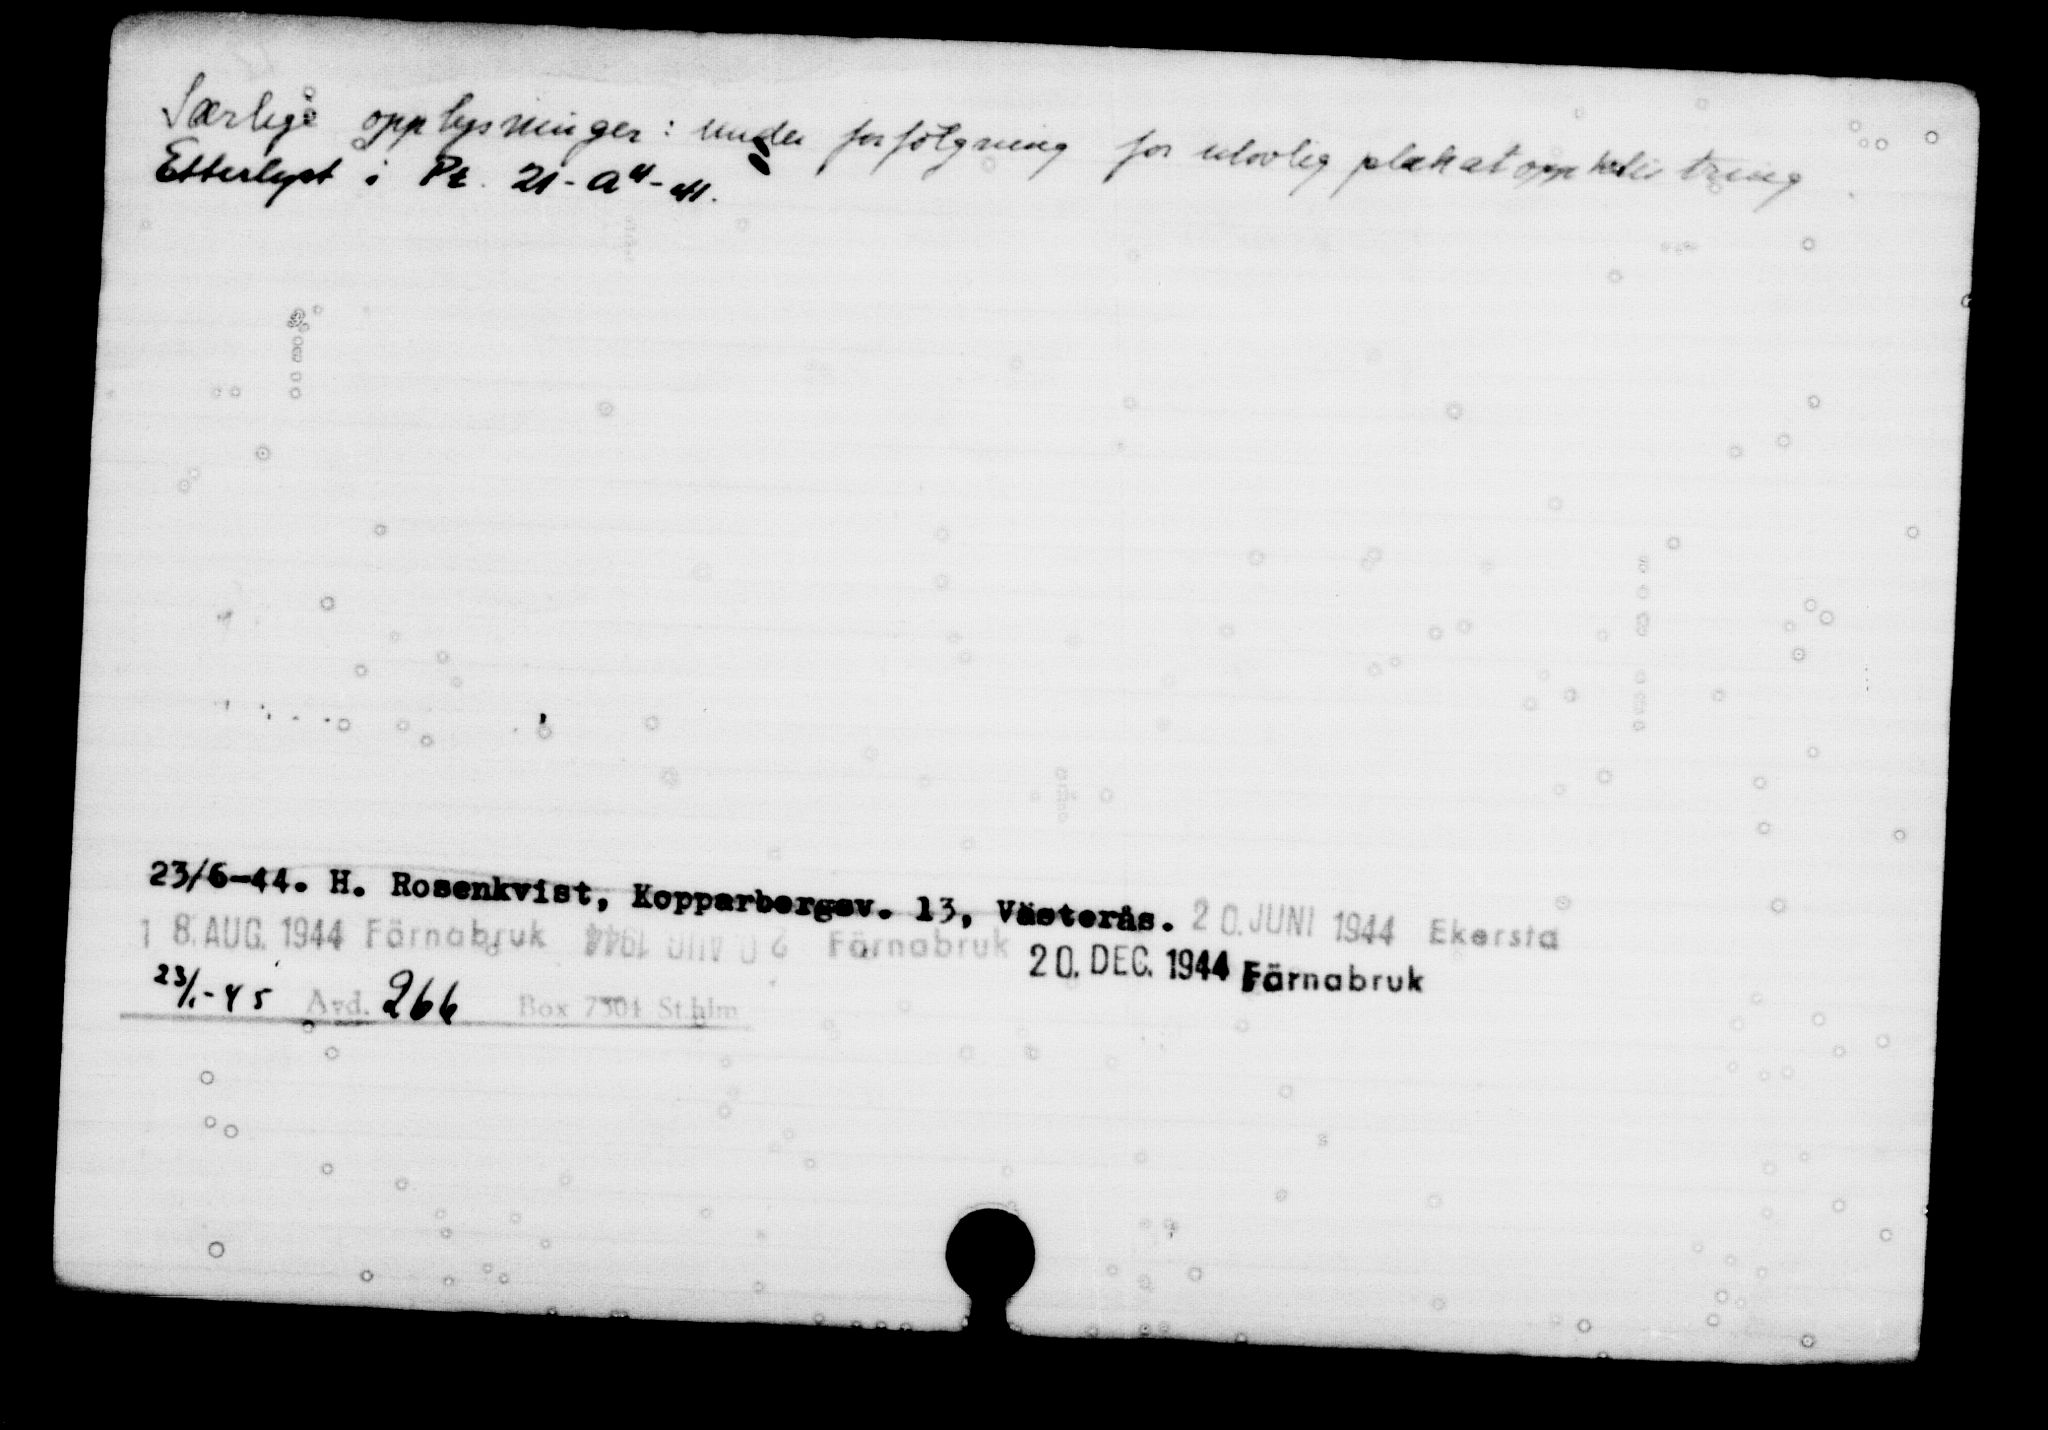 Særlige opplysninger: under forfølgning for ulovlig plakatoppklistring.
Etterlyst i Pt. 21-a"-41.
23/6-44. H. Rosenkvist, Kopparbergsv. 13, Västerås. 20. JUNI 1944 Ekersta
18. AUG. 1944 Färnabruk 20 AUG 1944 Färnabruk 20. DEC. 1944 Färnabruk
23/1-45 Avd. 266 Box 7301 St.hlm